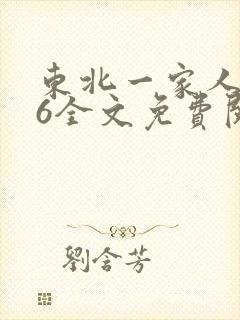 東北一家人
6全文免費
劉含芳